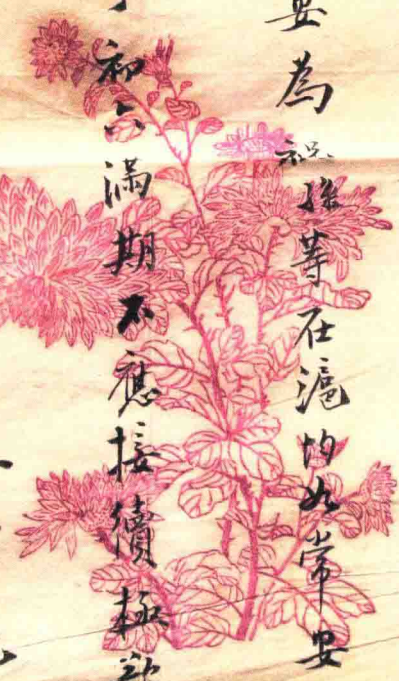 安為祝孫等在滬均如常安
初六滿期不應接續極欲